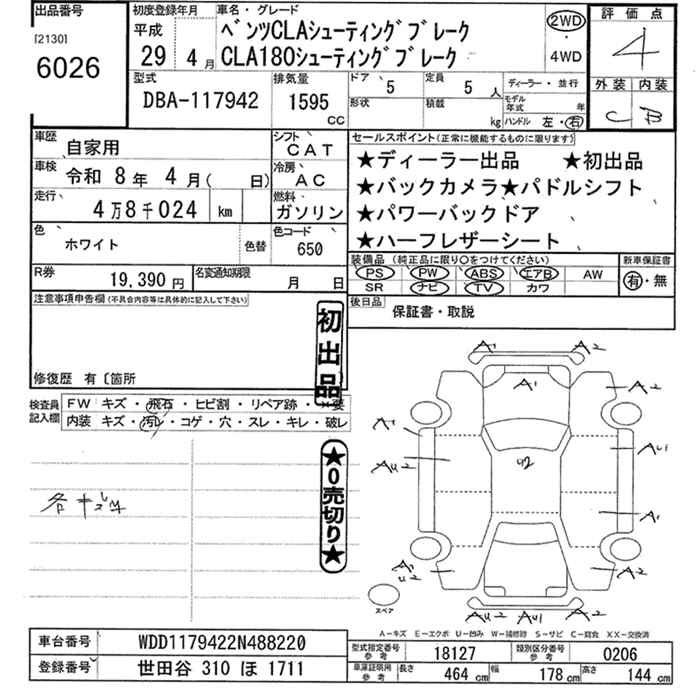 出品番号 初度登録年月 車名・グレード 2WD 評価点
[2130] 平成 ベンツCLAシューティングブレーク
6026 29 4月 CLA180シューティングブレーク 4WD 4
型式 排気量 ドア 5 定員 5人 ディーラー・並行 外装 内装
DBA-117942 1595 CC 形状 積載 kg モデル年式 年 C B
ハンドル 左・右
車歴 自家用 シフト CAT セールスポイント(正常に機能するものに限ります)
車検 令和 8年 4月( 日) 冷房 AC ★ディーラー出品 ★初出品
走行 4万8千024 km 燃料 ガソリン ★バックカメラ★パドルシフト
★パワーバックドア
色 ホワイト 色替 色コード 650 ★ハーフレザーシート
装備品(純正品に限り○をつけてください) 新車保証書
R券 19,390円 名変通知期限 月 日 PS PW ABS エアB AW 有・無
SR ナビ TV カワ
注意事項申告欄(不具合内容等は具体的に記入して下さい) 後日品 保証書・取説
初出品
修復歴 有〔箇所
検査員記入欄 FW キズ・飛石・ヒビ割・リペア跡・X要
内装 キズ・汚レ・コゲ・穴・スレ・キレ・破レ
★0売切り★
A1 A2
A1 A2
A1 A2
A1 AU1
AU2 W2
A1
A1 U2 A2
スペア
AU2 AU1 A2
A-キズ E-エクボ U-凹み W-補修跡 S-サビ C-腐食 XX-交換済
車台番号 WDD1179422N488220 型式指定番号 参考 18127 類別区分番号 参考 0206
登録番号 世田谷 310 ほ 1711 車庫証明用 参考 長さ 464cm 幅 178cm 高さ 144cm